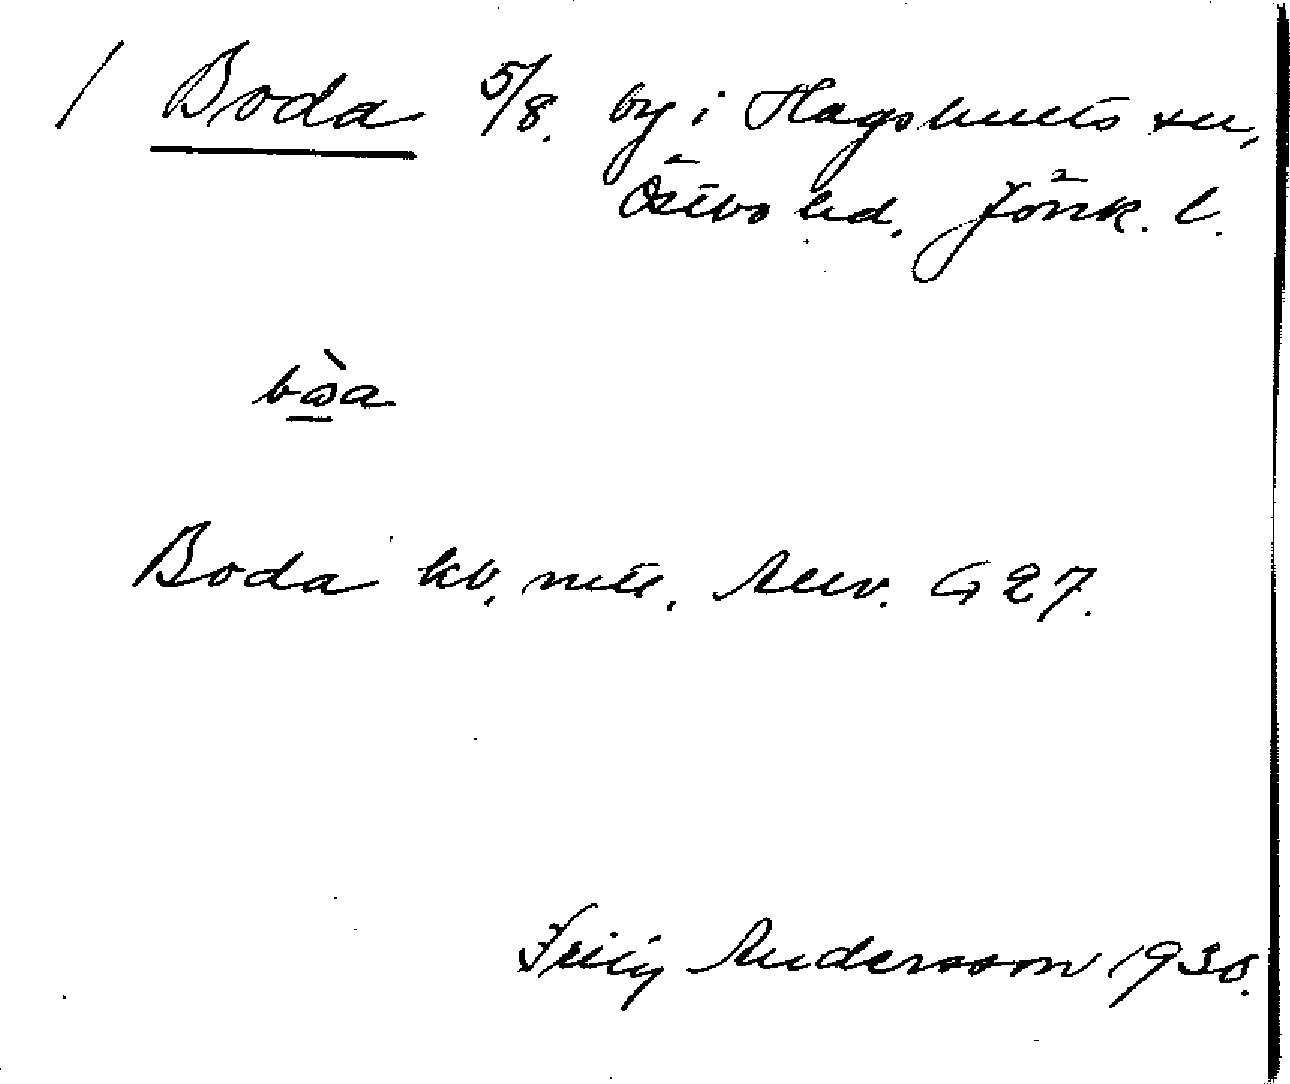 / Boda 5/8. by i Hagshults sn,
Östbo hd. Jönk. l.
bò̲a
Boda kv. mtl. G 27.
Andersson 1930.